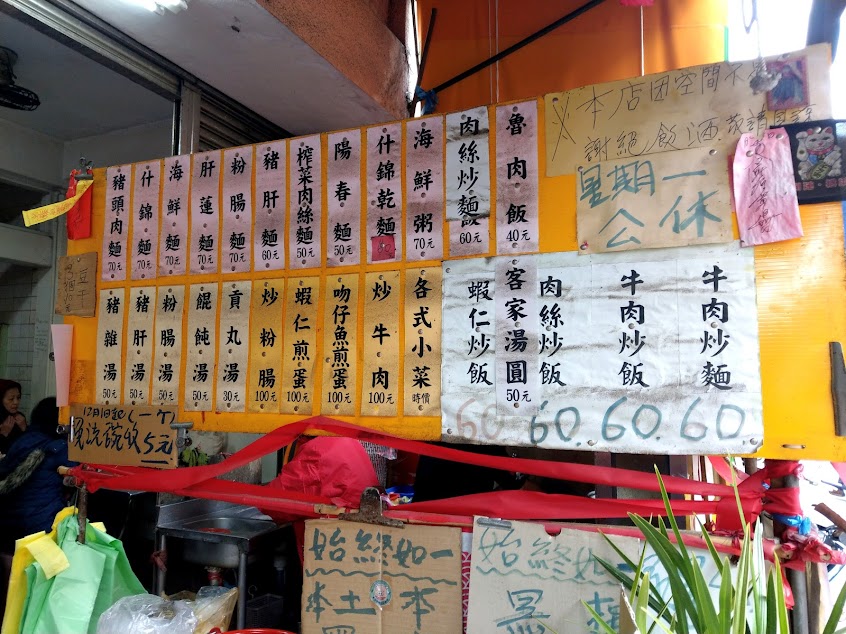 魯肉飯 40元
肉絲炒麵飯 60元
海鮮粥 70元
什錦乾麵
陽春麵 50元
榨菜肉絲麵 50元
豬肝麵 60元
粉腸麵 70元
肝蓮麵 70元
海鮮麵 70元
什錦麵 70元
豬頭肉麵 70元
各式小菜 時價
炒牛肉 100元
吻仔魚煎蛋 100元
蝦仁煎蛋 100元
炒粉腸 100元
貢丸湯 30元
餛飩湯 50元
粉腸湯 50元
豬肝湯 50元
豬雜湯 50元
牛肉炒麵 60
牛肉炒飯 60
肉絲炒飯 60
客家湯圓 50元
蝦仁炒飯 60
※本店因空間不
謝絕飲酒敬請
星期一
公休
豆干
12月1日起(一个)
洗碗 5元
始終如一
本土
始終如一
黑